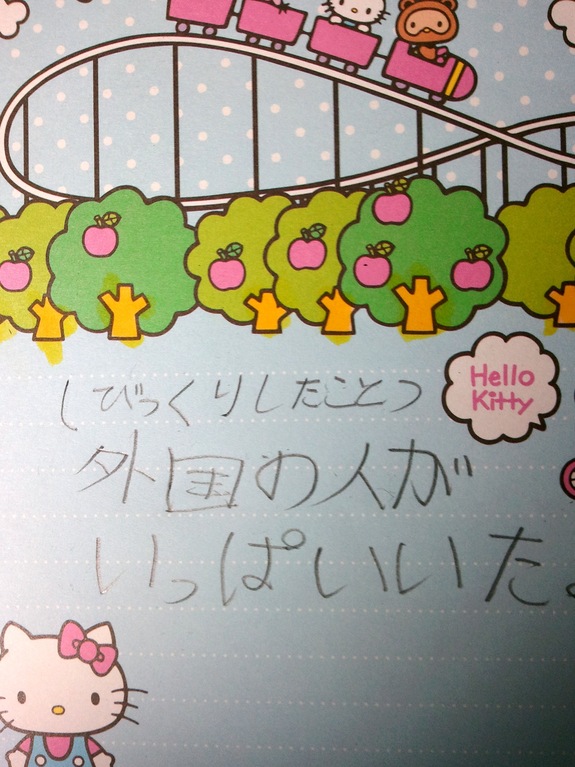 Hello
Kitty
(びっくりしたこと)
外国の人が
いっぱいいた。